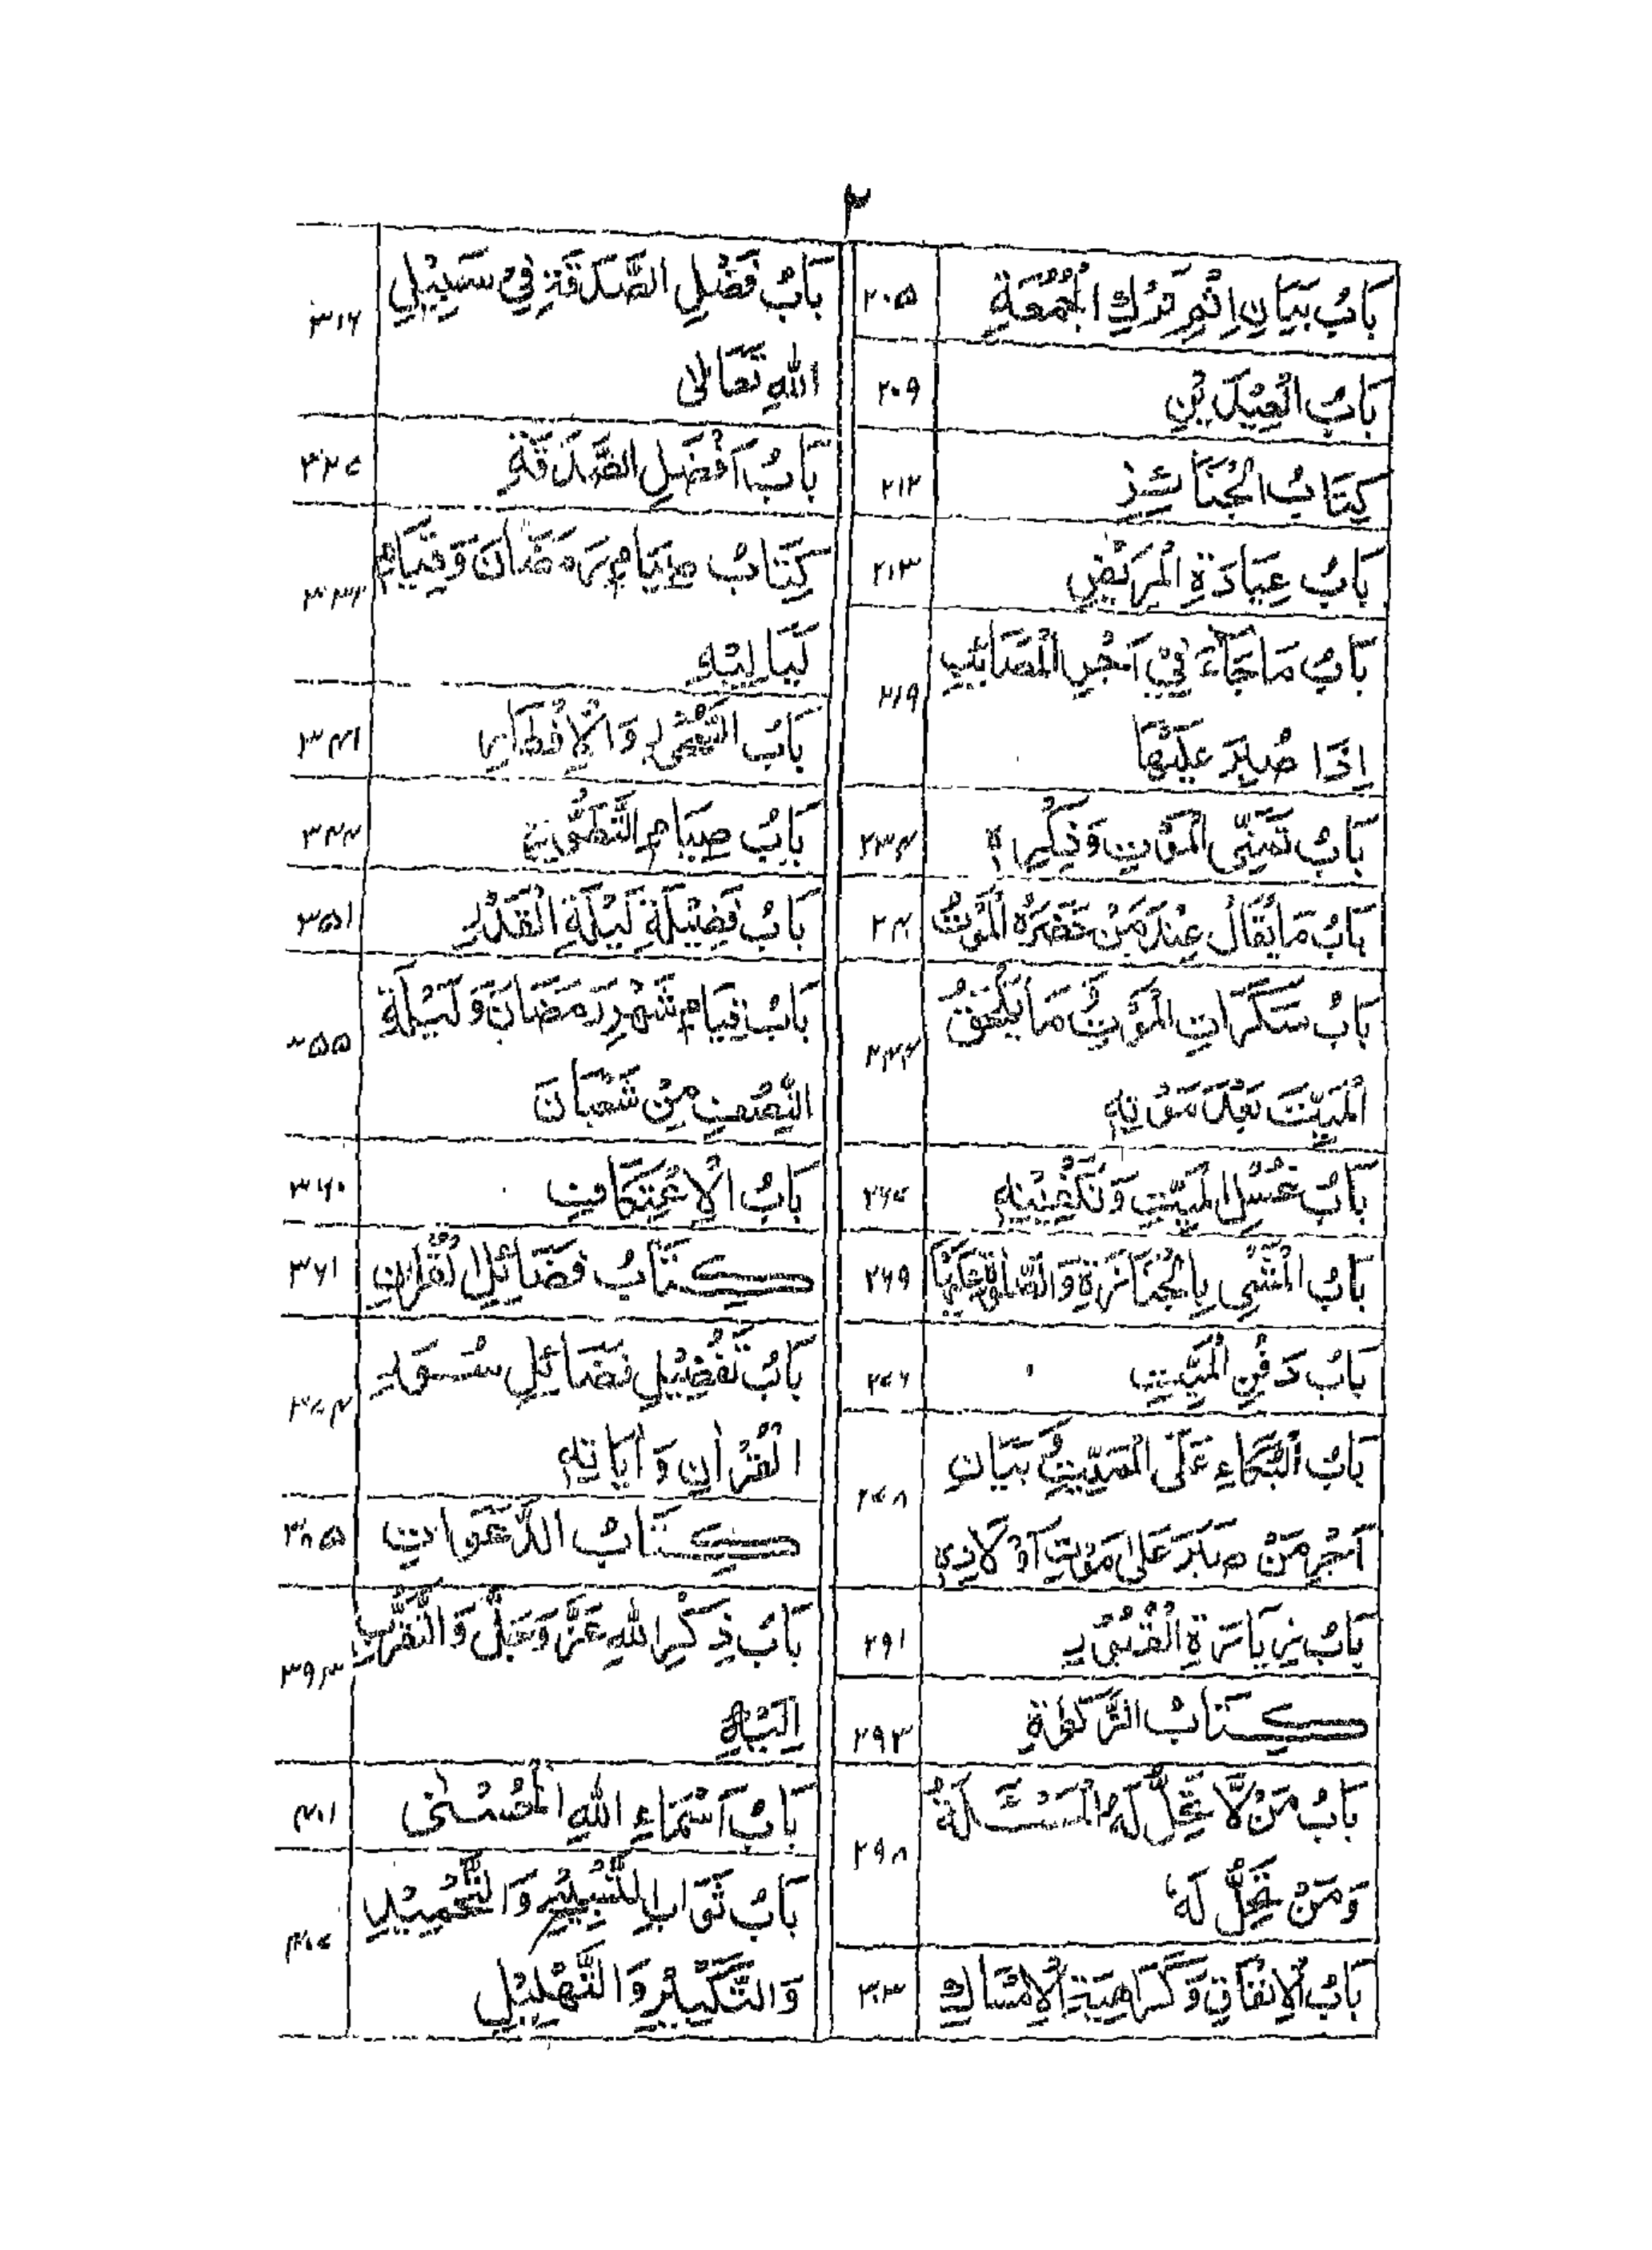 ۲
بَابُ بَيَانِ اِثْمِ تَرْكِ الْجُمُعَةِ ۲۰۵
بَابُ الْعِيْدَيْنِ ۲۰۹
كِتَابُ الْجَنَائِزِ ۲۱۲
بَابُ عِيَادَةِ الْمَرِيْضِ ۲۱۳
بَابُ مَا جَاءَ فِيْ اَجْرِ الْمَصَائِبِ ۲۱۹
اِذَا صُبِرَ عَلَيْهَا
بَابُ تَمَنِّى الْمَوْتِ وَذِكْرِهِ ۲۳۴
بَابُ مَا يُقَالُ عِنْدَ مَنْ حَضَرَهُ الْمَوْتُ ۲۴۰
بَابُ سَكَرَاتِ الْمَوْتِ مَا يَلْحَقُ ۲۴۴
الْمَيِّتَ بَعْدَ مَوْتِهِ
بَابُ غُسْلِ الْمَيِّتِ وَتَكْفِيْنِهِ ۲۶۷
بَابُ الْمَشْىِ بِالْجَنَازَةِ وَالصَّلٰوةِ عَلَيْهَا ۲۶۹
بَابُ دَفْنِ الْمَيِّتِ ۲۷۶
بَابُ الْبُكَاءِ عَلَى الْمَيِّتِ وَبَيَانِ ۲۷۸
اَجْرِ مَنْ صَبَرَ عَلٰى مَوْتِ اَوْلَادِهِ
بَابُ زِيَارَةِ الْقُبُوْرِ ۲۹۱
كِتَابُ الزَّكٰوةِ ۲۹۳
بَابُ مَنْ لَّا تَحِلُّ لَهُ الْمَسْئَلَةُ ۲۹۸
وَمَنْ تَحِلُّ لَهُ
بَابُ الْاِنْفَاقِ وَكَرَاهِيَةِ الْاِمْسَاكِ ۳۰۳
بَابُ فَضْلِ الصَّدَقَةِ فِيْ سَبِيْلِ ۳۱۶
اللهِ تَعَالٰى
بَابُ اَفْضَلِ الصَّدَقَةِ ۳۲۷
كِتَابُ صِيَامِ رَمَضَانَ وَقِيَامِ
لَيَالِيْهِ
بَابُ السُّحُوْرِ وَالْاِفْطَارِ ۳۴۱
بَابُ صِيَامِ التَّطَوُّعِ ۳۴۴
بَابُ فَضِيْلَةِ لَيْلَةِ الْقَدْرِ ۳۵۱
بَابُ قِيَامِ شَهْرِ رَمَضَانَ وَلَيْلَةِ ۳۵۵
النِّصْفِ مِنْ شَعْبَانَ
بَابُ الْاِعْتِكَافِ ۳۶۰
كِتَابُ فَضَائِلِ الْقُرْاٰنِ ۳۶۱
بَابُ تَفْضِيْلِ فَضَائِلِ سُوَرِ ۳۷۴
الْقُرْاٰنِ وَاٰيَاتِهِ
كِتَابُ الدَّعَوَاتِ ۳۸۵
بَابُ ذِكْرِ اللهِ عَزَّ وَجَلَّ وَالتَّقَرُّبِ ۳۹۳
اِلَيْهِ
بَابُ اَسْمَاءِ اللهِ الْحُسْنٰى ۴۰۱
بَابُ ثَوَابِ التَّسْبِيْحِ وَالتَّحْمِيْدِ ۴۰۷
وَالتَّكْبِيْرِ وَالتَّهْلِيْلِ